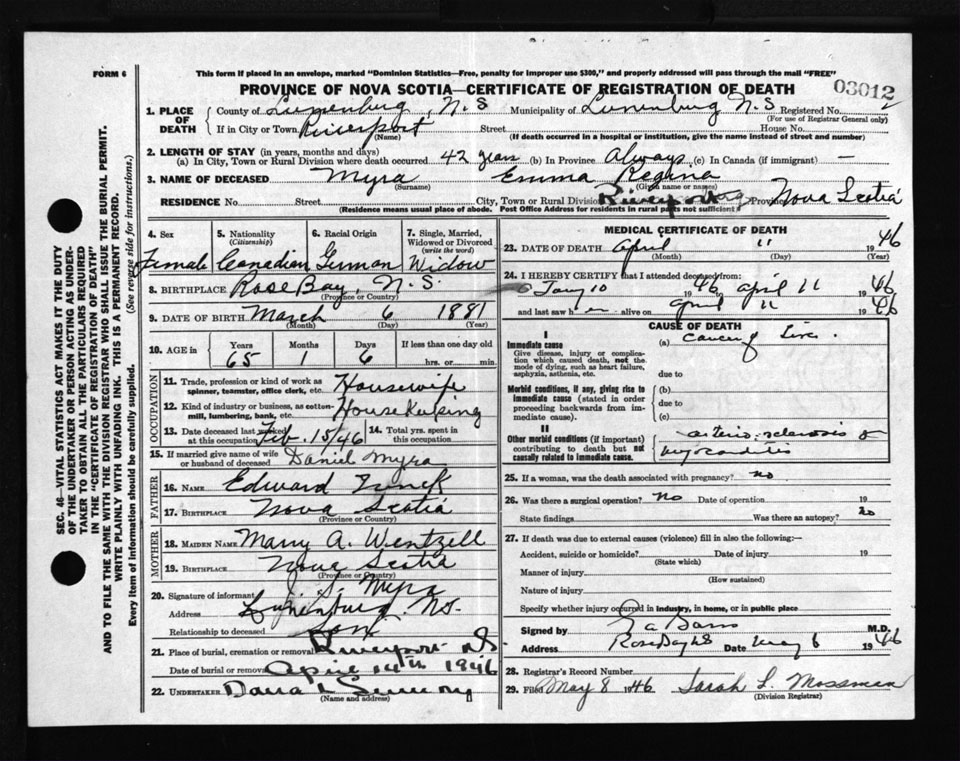 FORM 6
This form if placed in an envelope, marked "Dominion Statistics—Free, penalty for improper use $300," and properly addressed will pass through the mail "FREE"
PROVINCE OF NOVA SCOTIA—CERTIFICATE OF REGISTRATION OF DEATH
03012
1. PLACE OF DEATH
County of Lunenburg, N.S Municipality of Lunenburg N.S Registered No. 2
(For use of Registrar General only)
If in City or Town Riverport Street House No.
(Name) (If death occurred in a hospital or institution, give the name instead of street and number)
2. LENGTH OF STAY (in years, months and days)
(a) In City, Town or Rural Division where death occurred 42 years (b) In Province Always (c) In Canada (if immigrant) —
3. NAME OF DECEASED Myra Emma Regina
(Surname) (Given name or names)
RESIDENCE No. Street City, Town or Rural Division Riverport Province Nova Scotia
(Residence means usual place of abode. Post Office Address for residents in rural parts not sufficient)
4. Sex
Female
5. Nationality
(Citizenship)
Canadian
6. Racial Origin
German
7. Single, Married, Widowed or Divorced
(write the word)
Widow
8. BIRTHPLACE Rose Bay, N.S.
(Province or Country)
9. DATE OF BIRTH March 6 1881
(Month) (Day) (Year)
10. AGE in Years Months Days If less than one day old
65 1 6 hrs. or min.
OCCUPATION
11. Trade, profession or kind of work as spinner, teamster, office clerk, etc. Housewife
12. Kind of industry or business, as cotton-mill, lumbering, bank, etc. House Keeping
13. Date deceased last worked at this occupation Feb. 15/46 14. Total yrs. spent in this occupation
15. If married give name of wife or husband of deceased Daniel Myra
FATHER
16. NAME Edward
17. BIRTHPLACE Nova Scotia
(Province or Country)
MOTHER
18. MAIDEN NAME Mary A. Wentzell
19. BIRTHPLACE Nova Scotia
(Province or Country)
20. Signature of informant S. Myra
Address Lunenburg. NS.
Relationship to deceased Son
21. Place of burial, cremation or removal Riverport NS
Date of burial or removal April 14th 1946
22. UNDERTAKER
(Name and address)
MEDICAL CERTIFICATE OF DEATH
23. DATE OF DEATH April 11 1946
(Month) (Day) (Year)
24. I HEREBY CERTIFY that I attended deceased from:
Jany 10 1946 to April 11 1946
and last saw her alive on April 11 1946
CAUSE OF DEATH
I
Immediate cause
Give disease, injury or complication which caused death, not the mode of dying, such as heart failure, asphyxia, asthenia, etc.
(a) Cancer of Liver.
due to
Morbid conditions, if any, giving rise to immediate cause (stated in order proceeding backwards from immediate cause).
(b)
due to
(c)
II
Other morbid conditions (if important) contributing to death but not causally related to immediate cause.
arterio-sclerosis &
myocarditis
25. If a woman, was the death associated with pregnancy? no
26. Was there a surgical operation? no Date of operation 19
State findings Was there an autopsy? no
27. If death was due to external causes (violence) fill in also the following:
Accident, suicide or homicide? Date of injury 19
(State which)
Manner of injury
(How sustained)
Nature of injury
Specify whether injury occurred in industry, in home, or in public place
Signed by M.D.
Address Rose Bay NS Date May 6 1946
28. Registrar's Record Number
29. Filed May 8 1946 Sarah L. Mossman
(Division Registrar)
SEC. 46—VITAL STATISTICS ACT MAKES IT THE DUTY
OF THE UNDERTAKER OR PERSON ACTING AS UNDER-
TAKER TO OBTAIN ALL THE PARTICULARS REQUIRED
IN THE "CERTIFICATE OF REGISTRATION OF DEATH"
AND TO FILE THE SAME WITH THE DIVISION REGISTRAR WHO SHALL ISSUE THE BURIAL PERMIT.
WRITE PLAINLY WITH UNFADING INK. THIS IS A PERMANENT RECORD.
Every item of information should be carefully supplied. (See reverse side for instructions.)